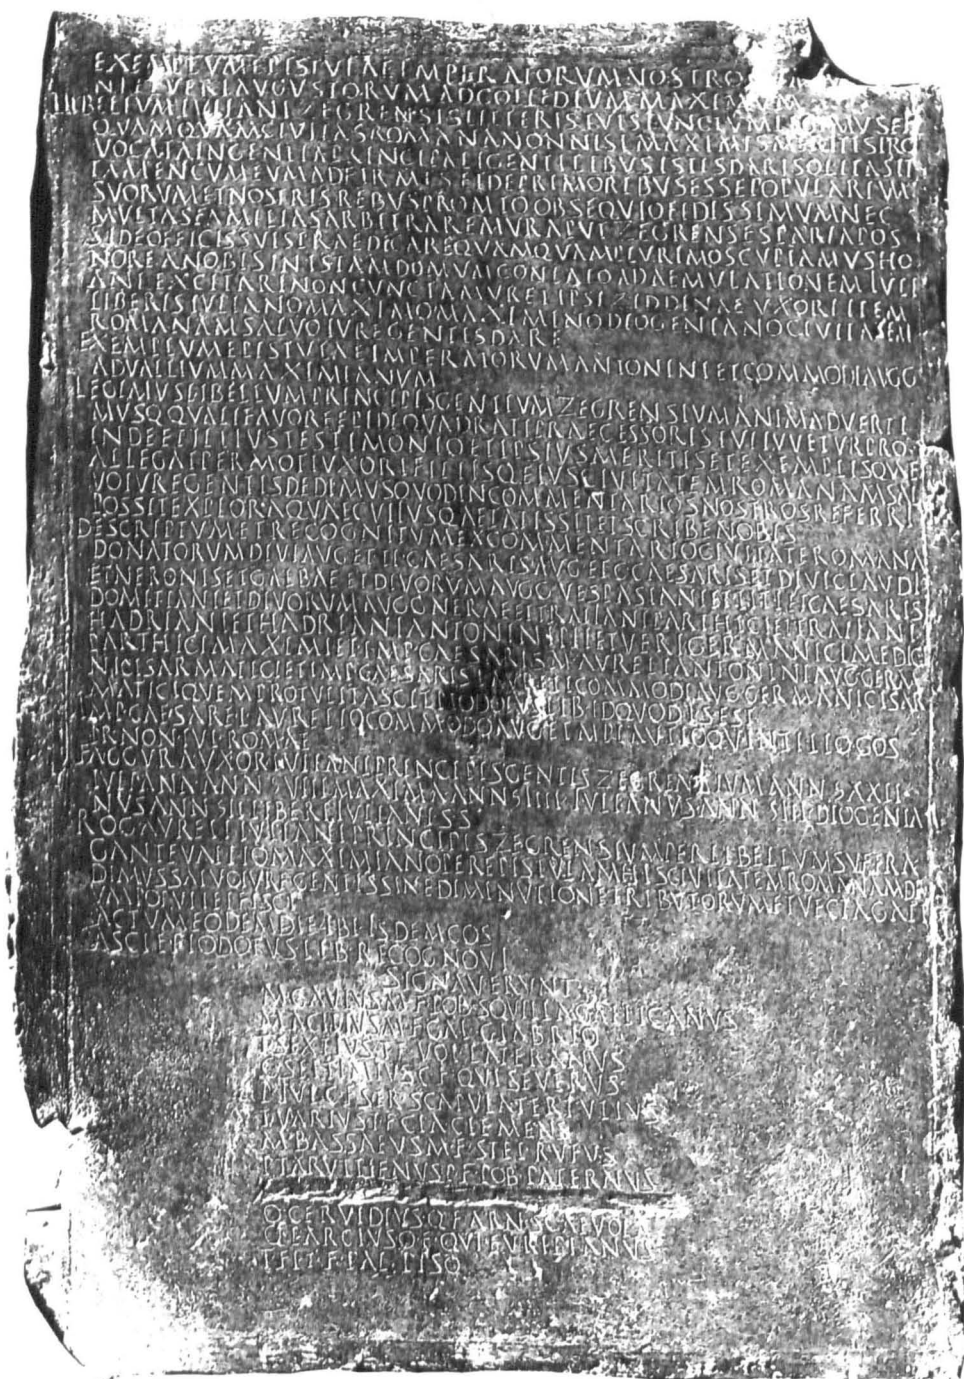 EXEMPLVM EPISTVLAE IMPERATORVM NOSTRO
NI ET VERI AVGVSTORVM AD COIIEDIVM MAXIMVM
LIBELLVM IVLIANI ZEGRENSIS LITTERIS TVIS IVNCTVM LEGIMVS ET
QVAMQVAM CIVITAS ROMANA NON NISI MAXIMIS MERITIS PRO
VOCATA INGENTIA PRINCIPALI GENTILIBVS ISTIS DARI SOLITA SIT
TAMEN CVM EVM ADFIRMES ET DE PRIMORIBVS ESSE POPVLARIVM
SVORVM ET NOSTRIS REBVS PROMTO OBSEQVIO FIDISSIMVM NEC
MVLTAS FAMILIAS ARBITRAREMVR APVT ZEGRENSES PARIA POS
S DE OFFICIS SVIS PRAEDICARE QVAMQVAM PLVRIMOS CVPIAMVS HO
NORE A NOBIS IN ISTAM DOMVM CONLATO AD AEMVLATIONEM IVLI
ANI EXCITARI NON CVNCTAMVR ET IPSI ZIDDINAE VXORI ITEM
LIBERIS IVLIANO MAXIMO MAXIMINO DIOGENIANO CIVITATEM
ROMANAM SALVO IVRE GENTIS DARE
EXEMPLVM EPISTVLAE IMPERATORVM ANTONINI ET COMMODI AVGG
AD VALLIVM MAXIMIANVM
LEGIMVS LIBELLVM PRINCIPIS GENTIVM ZEGRENSIVM ANIMADVERTI
MVSQ QVALI FAVORE EPIDI QVADRATI PRAECESSORIS TVI IVVETVR PRO
INDE ET ILLIVS TESTIMONIO ET IPSIVS MERITIS ET EXEMPLIS QVAE
ALLEGAT PERMOTI VXORI FILIISQ EIVS CIVITATEM ROMANAM SAL
VO IVRE GENTIS DEDIMVS QVOD IN COMMENTARIOS NOSTROS REFERRI
POSSIT EXPLORA QVAE CVIIVSQ AETATIS SIT ET SCRIBE NOBIS
DESCRIPTVM ET RECOGNITVM EX COMMENTARIO CIVITATE ROMANA
DONATORVM DIVI AVG ET TI CAESARIS AVG ET C CAESARIS ET DIVI CLAVDI
ET NERONIS ET GALBAE ET DIVORVM AVGG VESPASIANI ET TITI ET CAESARIS
DOMITIANI ET DIVORVM AVGG NERVAE ET TRAIANI PARTHICI ET TRAIANI
HADRIANI ET HADRIANI ANTONINI PII ET VERI GERMANICI MEDICI
PARTHICI MAXIMI ET IMP CAESARIS M AVRELI ANTONINI AVG GERMA
NICI SARMATICI ET IMP CAESARIS L AVRELI COMMODI AVG GERMANICI SAR
MATICI QVEM PROTVLIT ASCLEPIODOTVS LIB ID QVOD I S EST
IMP CAESARE L AVRELIO COMMODO AVG ET M PLAVTIO QVINTILIO COS
PR NON IVL ROMAE
FAGGVRA VXOR IVLIANI PRINCIPIS GENTIS ZEGRENSIVM ANN XXII
IVLIANA ANN VIII MAXIMA ANN IIII IVLIANVS ANN III DIOGENIA
NVS ANN II LIBERI IVLIANI S S
ROG AVRELI IVLIANI PRINCIPIS ZEGRENSIVM PER LIBELLVM SVFFRA
GANTE VALLIO MAXIMIANO PER EPISTVLAM HIS CIVITATEM ROMANAM DE
DIMVS SALVO IVRE GENTIS SINE DIMINVTIONE TRIBVTORVM ET VECTIGALI
VM POPVLI ET FISCI
ACTVM EODEM DIE IBI ISDEM COS
ASCLEPIODOTVS LIB RECOGNOVI
SIGNAVERVNT
M GAVIVS M F POB SQVILLA GALLICANVS
M ACILIVS M F GAL GLABRIO
T SEXTIVS T F VOT LATERANVS
C SEPTIMIVS C F QVI SEVERVS
P IVLIVS C F SER SCAPVLA TERTVLLVS
T VARIVS T F CLA CLEMENS
M BASSAEVS M F STEL RVFVS
P TARVTTIENVS P F POB PATERNVS
Q CERVIDIVS Q F ARN SCAEVOLA
Q LARCIVS Q F QVI EVRIPIANVS
T FL T F PAL PISO